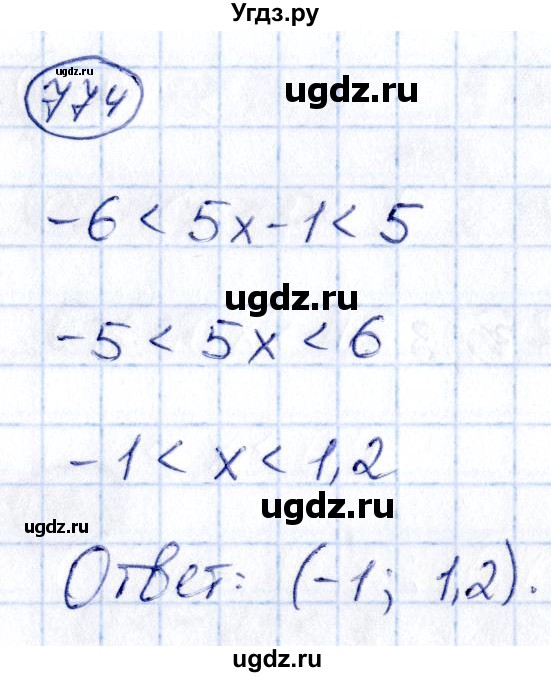 Угдз.ру
ugdz.ru
ugdz.ru
774
-6 < 5x - 1 < 5
ugdz.ru
-5 < 5x < 6
-1 < x < 1,2
ugdz.ru
ugdz.ru
Ответ: (-1; 1,2).
ugdz.ru